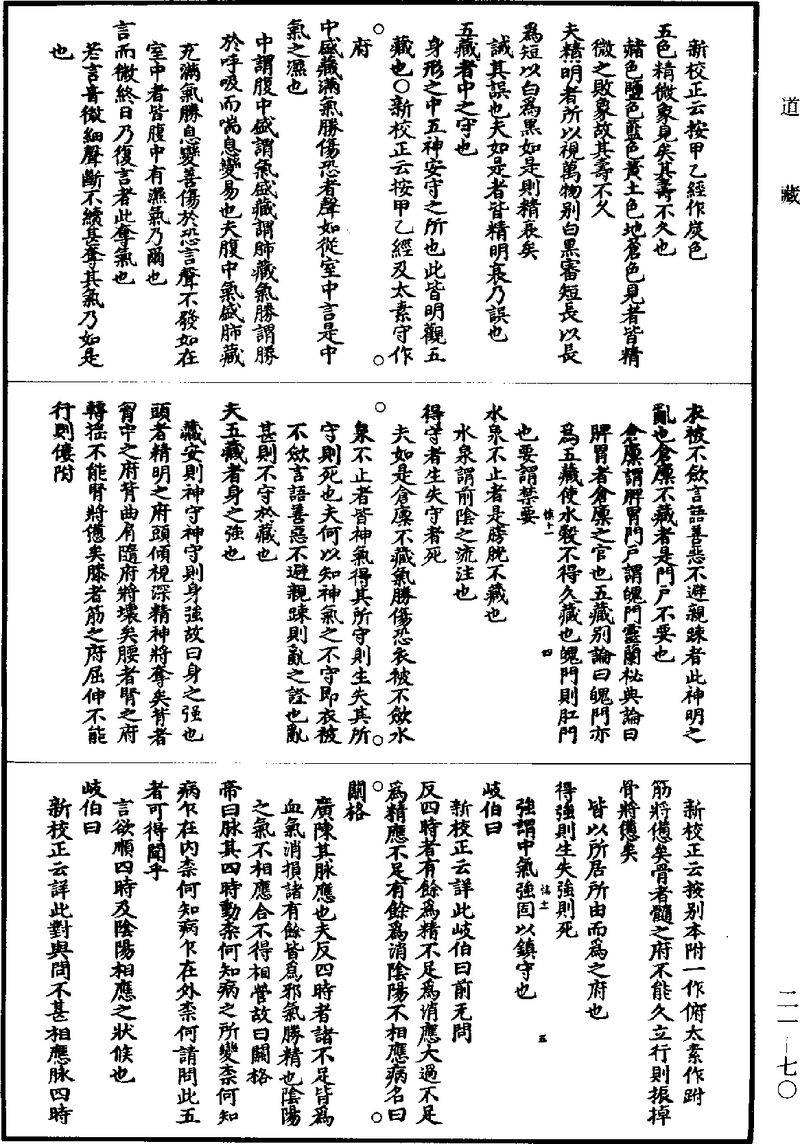 道藏
新校正云按甲乙經作炭色
五色精微象見矣其壽不久也
赭色鹽色藍色黃土色地蒼色見者皆精
微之敗象故其壽不久
夫精明者所以視萬物别白黑審短長以長
爲短以白爲黑如是則精衰矣
誡其誤也夫如是者皆精明衰乃誤也
五藏者中之守也
身形之中五神安守之所也此皆明觀五
藏也○新校正云按甲乙經及太素守作
府
中盛藏滿氣勝傷恐者聲如從室中言是中
氣之濕也
中謂腹中盛謂氣盛藏謂肺藏氣勝謂勝
於呼吸而喘息變易也夫腹中氣盛肺藏
充滿氣勝息變善傷於恐言聲不發如在
室中者皆腹中有濕氣乃爾也
言而微終日乃復言者此奪氣也
若言音微細聲斷不續甚奪其氣乃如是
也
衣被不歛言語善惡不避親踈者此神明之
亂也倉廩不藏者是門戶不要也
倉廩謂脾胃門戶謂魄門靈蘭秘典論曰
脾胃者倉廩之官也五藏别論曰魄門亦
爲五藏使水穀不得久藏也魄門則肛門
也要謂禁要
水泉不止者是膀胱不藏也
水泉謂前陰之流注也
得守者生失守者死
夫如是倉廩不藏氣勝傷恐衣被不歛水
泉不止者皆神氣得其所守則生失其所
守則死也夫何以知神氣之不守即衣被
不歛言語善惡不避親踈則亂之證也亂
甚則不守於藏也
夫五藏者身之強也
藏安則神守神守則身強故曰身之強也
頭者精明之府頭傾視深精神將奪矣背者
胷中之府背曲肩隨府將壞矣腰者腎之府
轉揺不能腎將憊矣膝者筋之府屈伸不能
行則僂附
新校正云按别本附一作俯太素作跗
筋將憊矣骨者髓之府不能久立行則振掉
骨將憊矣
皆以所居所由而爲之府也
得強則生失強則死
強謂中氣強固以鎮守也
岐伯曰
新校正云詳此岐伯曰前无問
反四時者有餘爲精不足爲消應大過不足
爲精應不足有餘爲消陰陽不相應病名曰
關格
廣陳其脉應也夫反四時者諸不足皆爲
血氣消損諸有餘皆爲邪氣勝精也陰陽
之氣不相應合不得相營故曰關格
帝曰脉其四時動柰何知病之所變柰何知
病乍在内柰何知病乍在外柰何請問此五
者可得聞乎
言欲順四時及陰陽相應之狀候也
岐伯曰
新校正云詳此對與問不甚相應脉四時
二一—七〇